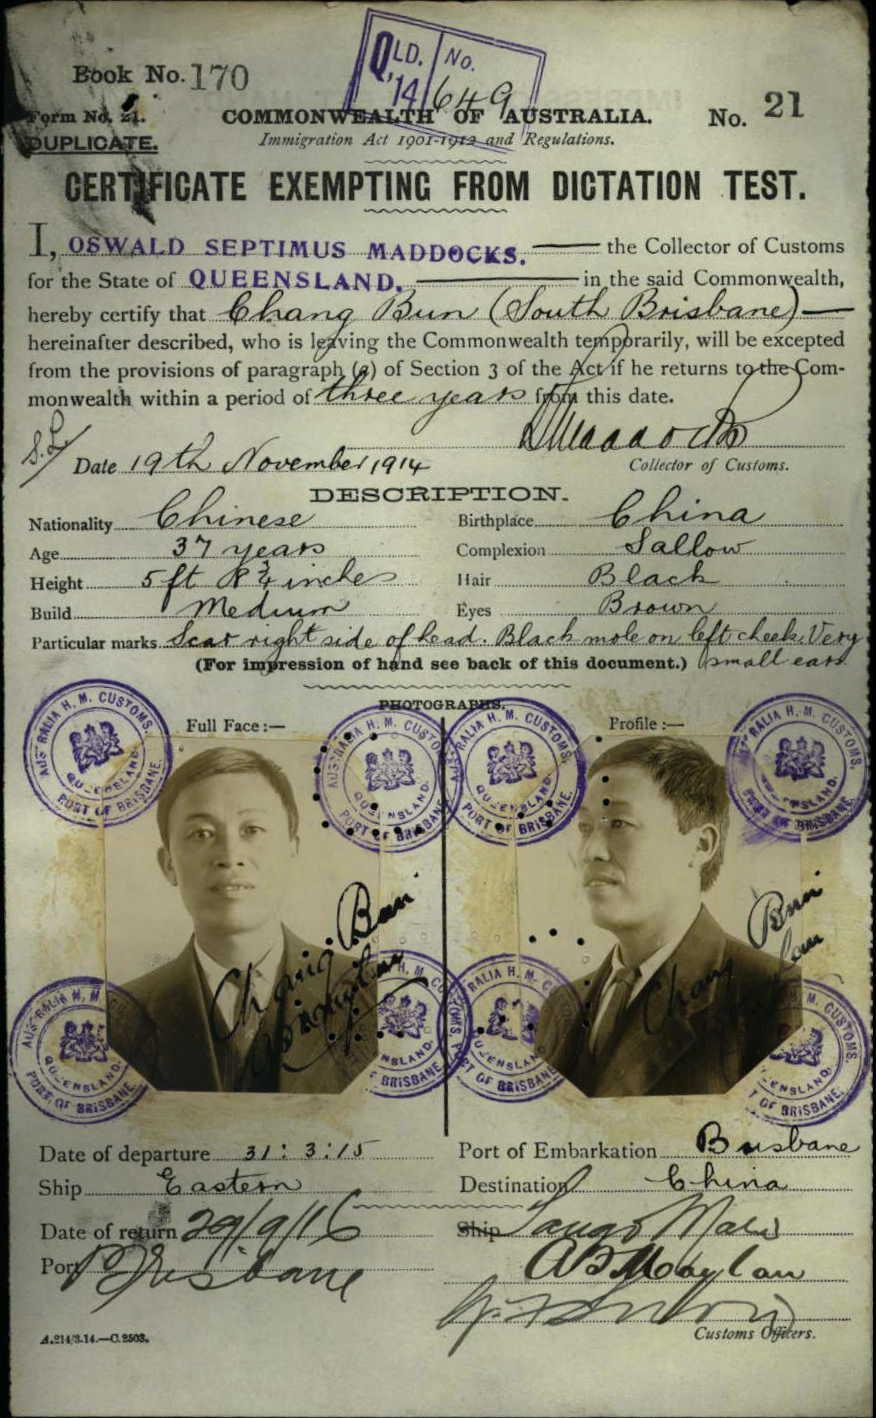 QLD. No.
'14 649
Book No. 170
Form No. 21.
COMMONWEALTH OF AUSTRALIA.
No. 21
DUPLICATE.
Immigration Act 1901-1912 and Regulations.
CERTIFICATE EXEMPTING FROM DICTATION TEST.
I, OSWALD SEPTIMUS MADDOCKS. the Collector of Customs
for the State of QUEENSLAND. in the said Commonwealth,
hereby certify that Chang Bun (South Brisbane)
hereinafter described, who is leaving the Commonwealth temporarily, will be excepted
from the provisions of paragraph (a) of Section 3 of the Act if he returns to the Com-
monwealth within a period of three years from this date.
Date 19th November, 1914
Collector of Customs.
DESCRIPTION.
Nationality Chinese Birthplace China
Age 37 years Complexion Sallow
Height 5 ft 8¾ inches Hair Black
Build Medium Eyes Brown
Particular marks Scar right side of head. Black mole on left cheek. Very
(For impression of hand see back of this document.) small ears
PHOTOGRAPHS.
Full Face :— Profile :—
AUSTRALIA H. M. CUSTOMS.
QUEENSLAND.
PORT OF BRISBANE.
AUSTRALIA H. M. CUSTOMS.
QUEENSLAND.
PORT OF BRISBANE.
AUSTRALIA H. M. CUSTOMS.
QUEENSLAND.
PORT OF BRISBANE.
AUSTRALIA H. M. CUSTOMS.
QUEENSLAND.
PORT OF BRISBANE.
Chang Bun
Chang Bun
AUSTRALIA H. M. CUSTOMS.
QUEENSLAND.
PORT OF BRISBANE.
H. M. CUSTOMS.
QUEENSLAND.
BRISBANE.
AUSTRALIA H. M.
QUEENSLAND.
PORT OF BRISBANE.
H. M. CUSTOMS.
QUEENSLAND.
PORT OF BRISBANE.
Date of departure 31 : 3 : 15 Port of Embarkation Brisbane
Ship Eastern Destination China
Date of return 29/9/16 Ship
Port Brisbane
Customs Officers.
A.214/3.14.—C.2503.